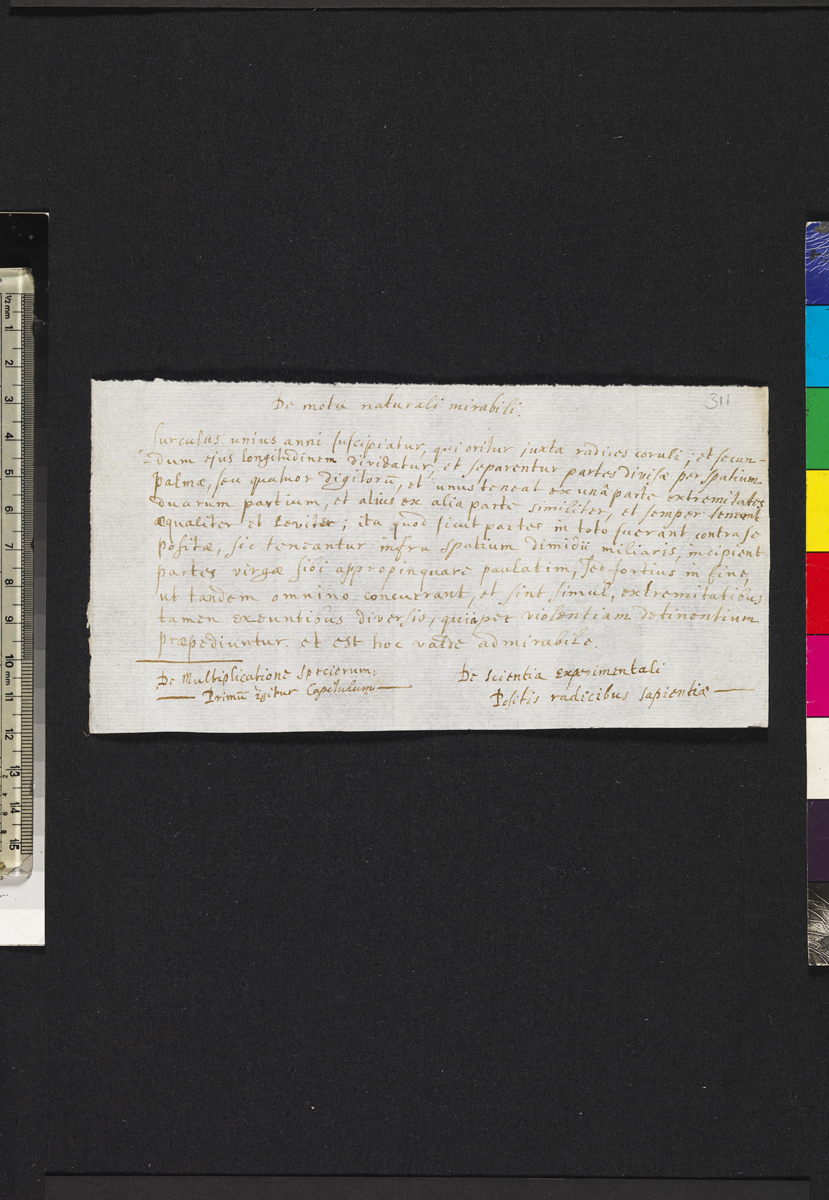 De motu naturali mirabili.
311
Surculus unius anni suscipiatur, qui oritur juxta radices coruli; et secun-
dum ejus longitudinem dividatur, et separentur partes divisæ per spatium
palmæ, seu quatuor digitorū, et unus teneat ex unâ parte extremitates
duarum partium, et alius ex alia parte similiter, et semper teneant
æqualiter et leviter; ita quod sicut partes in toto fuerant contra se
positæ, sic teneantur infra spatium dimidii miliaris, incipient
partes virgæ sibi appropinquare paulatim, sed fortius in fine,
ut tandem omnino concurrant, et sint simul, extremitatibus
tamen exeuntibus diversis, quia per violentiam detinentium
præpediuntur. et est hoc valde admirabile.
De Multiplicatione specierum.
Primū igitur Capitulum
De scientia experimentali
Positis radicibus sapientiæ
1/2 mm 1 2 3 4 5 6 7 8 9 10 mm 11 12 13 14 15